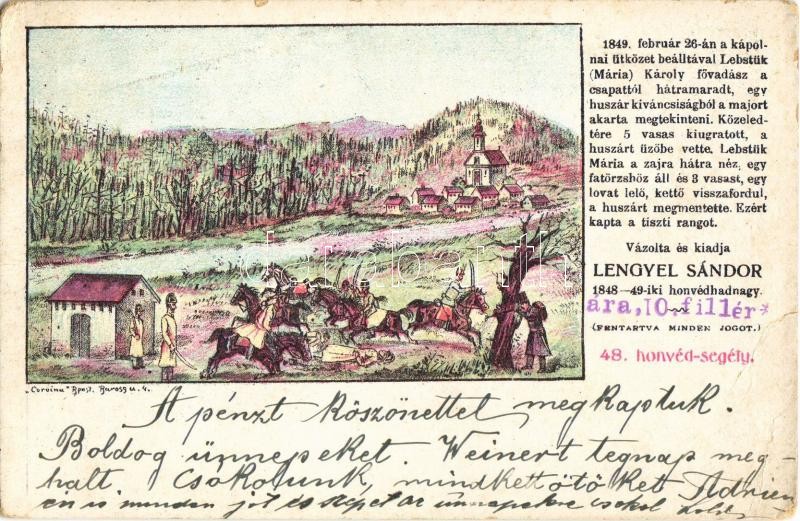 1849. február 26-án a kápol-
nai ütközet beálltával Lebstük
(Mária) Károly fővadász a
csapattól hátramaradt, egy
huszár kiváncsiságból a majort
akarta megtekinteni. Közeled-
tére 5 vasas kiugratott, a
huszárt üzőbe vette. Lebstük
Mária a zajra hátra néz, egy
fatörzshöz áll és 3 vasast, egy
lovat lelő, kettő visszafordul,
a huszárt megmentette. Ezért
kapta a tiszti rangot.
Vázolta és kiadja
LENGYEL SÁNDOR
1848—49-iki honvédhadnagy.
ára, 10 fillér
(FENTARTVA MINDEN JOGOT.)
48. honvéd-segély.
darabanth
„Corvina" Bpest. Baross u. 4.
A pénzt köszönettel megkaptuk.
Boldog ünnepeket. Weinert tegnap meg-
halt Csókolunk, mindkettőtöket Adrien
én is minden jót és szépet az ünnepekre csókol